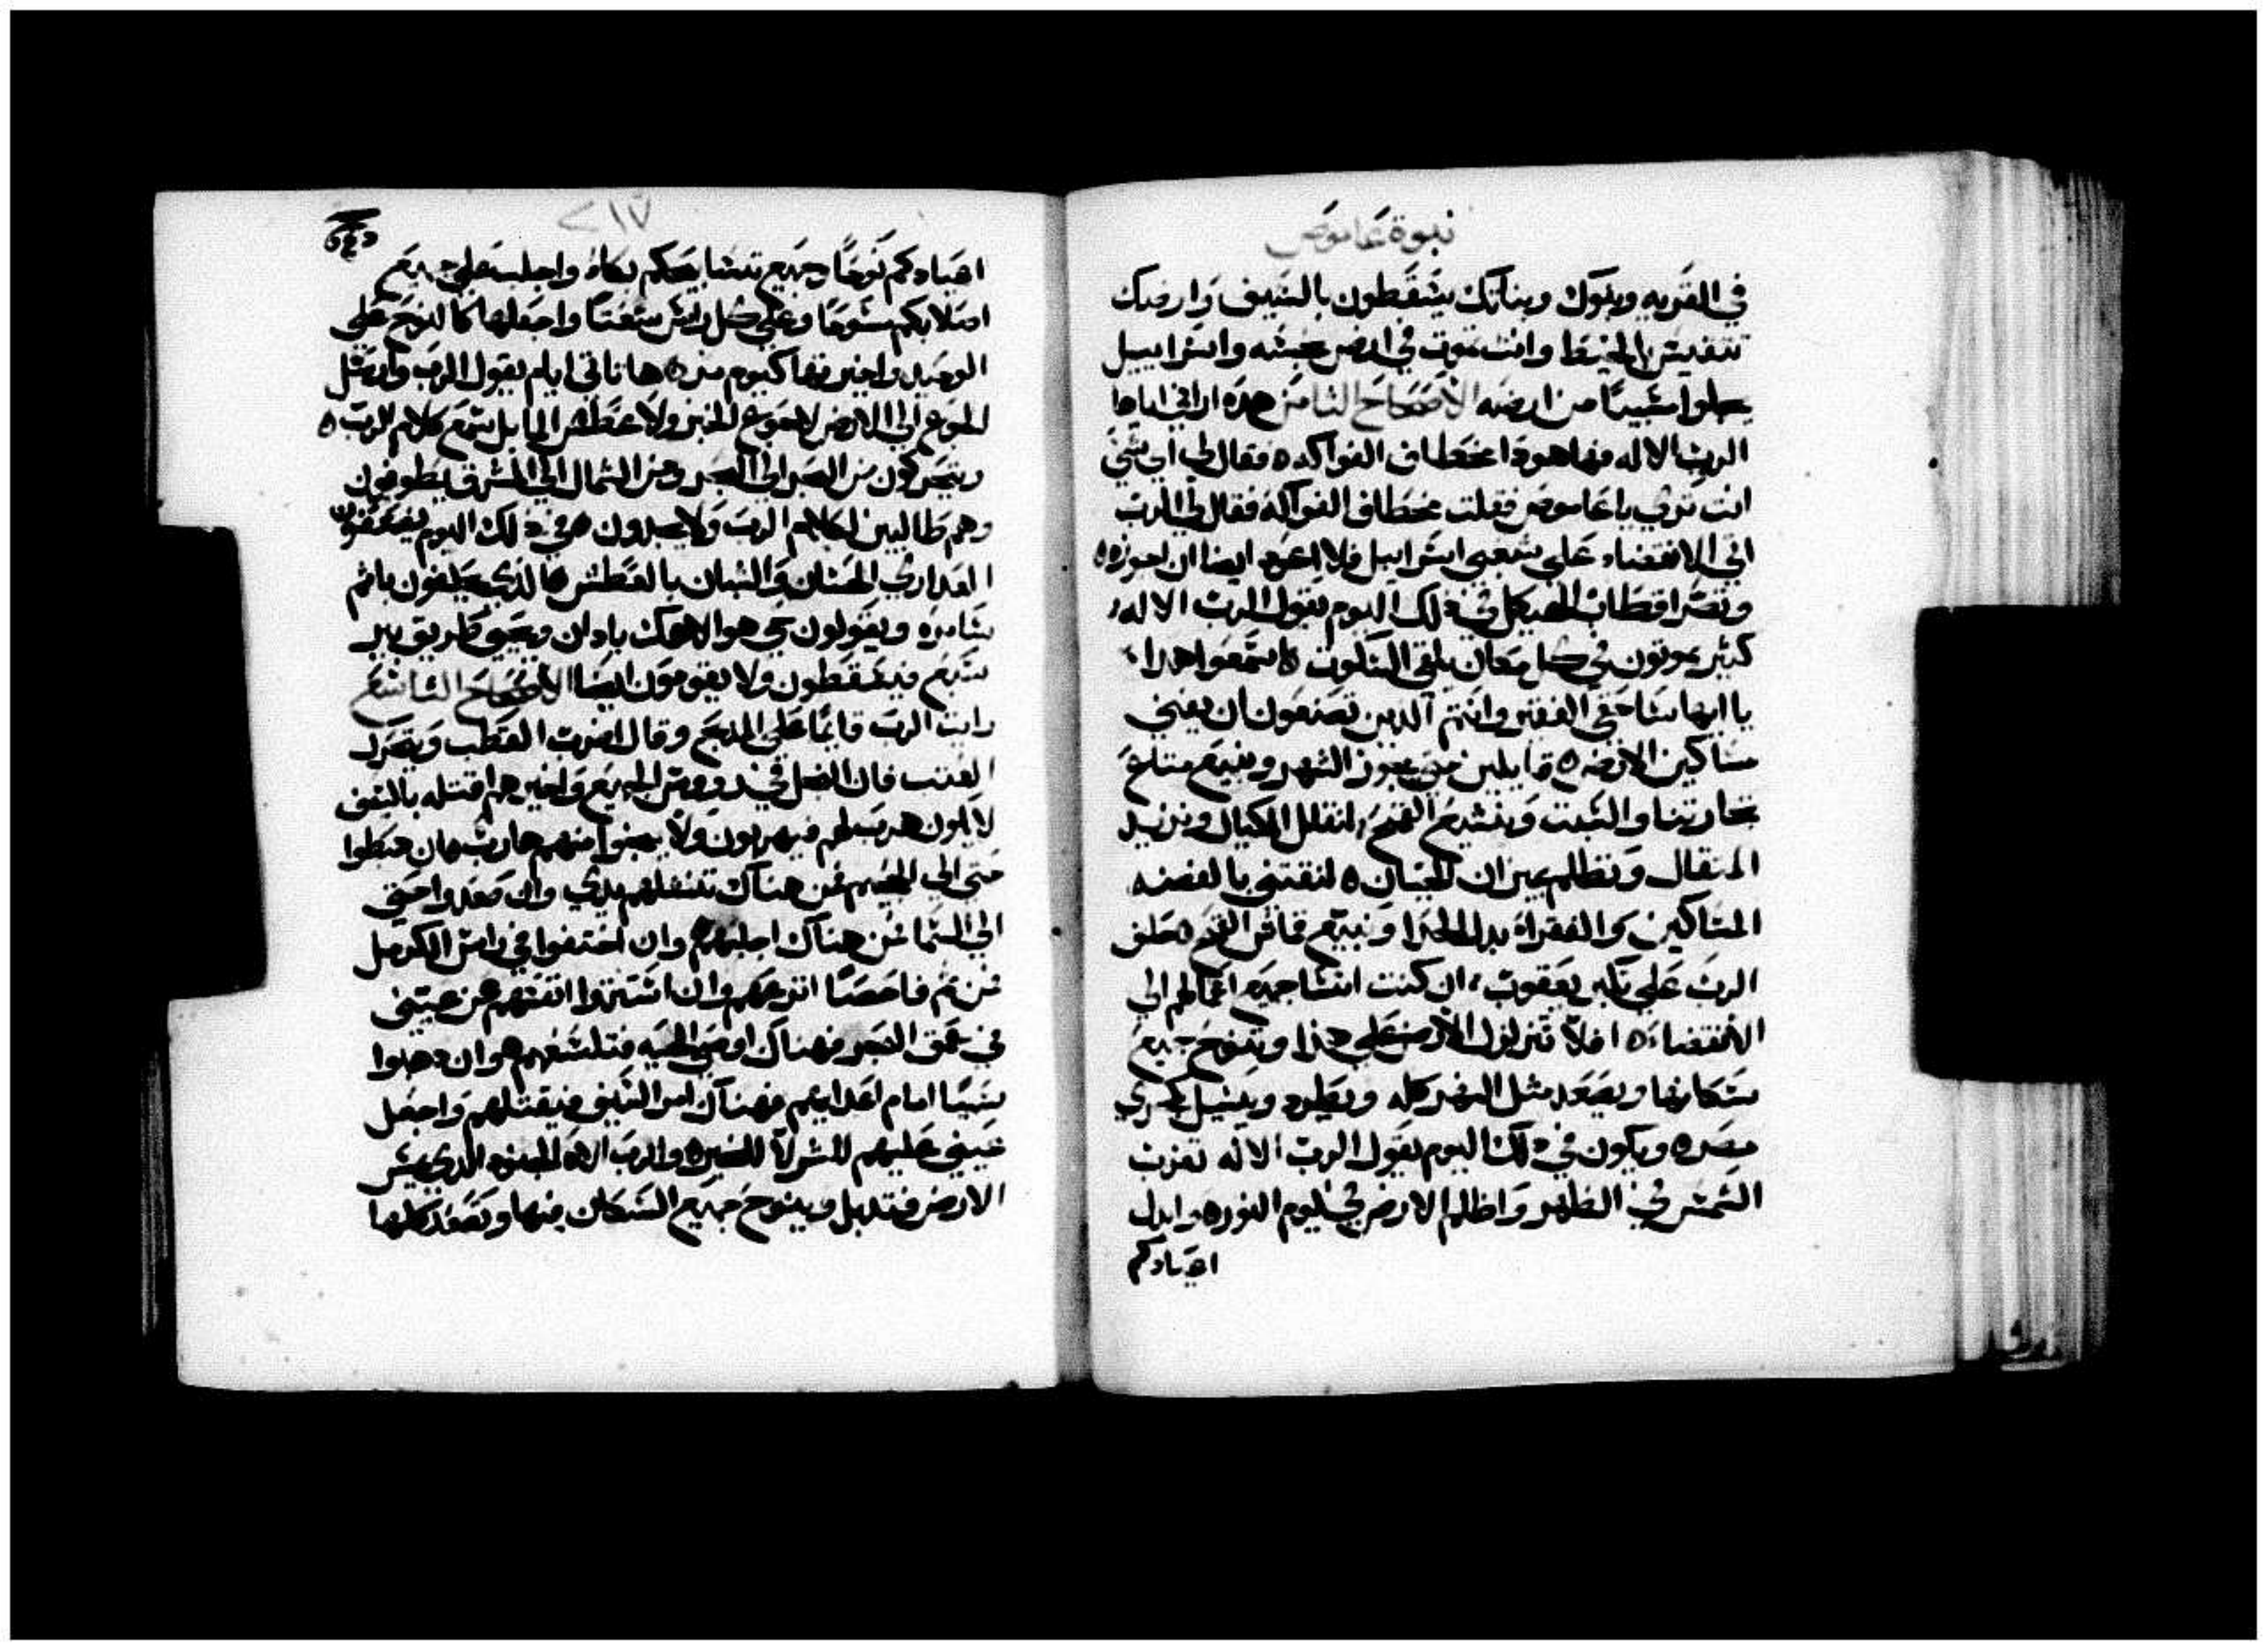 نبوة عاموص
في القريه وبنوك وبناتك يسقطون بالسيف وارضك
تنقيس بالخيط وانت تموت في ارض نجسه واسراييل
يجلوا سبيًا من ارضه الاصحاح الثامن هذه اراني اياها
الرب الاله فها هوذا مخطاف الفواكه ٥ فقال لي اي شي
انت تري يا عاموص فقلت مخطاف الفواكه فقال لي الرب
اتي الانقضاء علي شعبي اسراييل فلا اعود ايضا ان اجوزه ٥
وتصر اقطاب الهيكل في ذلك اليوم يقول الرب الاله
كثير يموتون في كل مكان يلقي السكوت ٥ اسمعوا هذا
يا ايها ساحقي الفقير وانتم الذين تصنعون ان يفني
مساكين الارض ٥ قايلين متي يجوز الشهر ونبيع متاع
تجارتنا والسبت ونفتح القمح لنقلل المكيال ونزيد
المثقال ونظلم بميزان الخسران ٥ لنقتني بالفضه
المساكين والفقراء بدل الحدا ونبيع قماش القمح ٥ حلف
الرب علي تكبر يعقوب ان كنت انسا جميع اعمالهم الي
الانقضاء ٥ افلا تتزلزل الارض علي هذا وينوح جميع
سكانها ويصعد مثل النهر كله ويطرد ويسيل كمجري
مصر ٥ ويكون في ذلك اليوم يقول الرب الاله تغرب
الشمس في الظهر واظلم الارض في يوم النور ٥ وابدل
اعيادكم
٢١٧
اعيادكم نوحًا وجميع تسابيحكم بكاء واجلب علي جميع
اصلابكم مسوحًا وعلي كل راس نتفًا واجعلها كالنوح علي
الوحيد واخيرتها كيوم مر ٥ ها تاتي ايام يقول الرب وارسل
الجوع الي الارض لا جوع الخبز ولا عطش الما بل سمع كلام الرب ٥
ويتحركون من البحر الي البحر ومن الشمال الي المشرق يطوفون
وهم طالبين لكلام الرب ولا يجدون ٥ في ذلك اليوم يضعفون
العداري الحسان والشبان بالعطش ٥ الذي يحلفون باثم
سامره ويقولون حي هو الاهك يا دان وحيي طريق بير
سبع فيسقطون ولا يقومون ايضا الاصحاح التاسع
رايت الرب قايمًا علي المذبح وقال اضرب القطب ويتحرك
العتب فان البخل في رووس الجميع واخيرهم اقتله بالسيف
لا يكون هرب لهم فيهربون ولا ينجوا منهم هارب ٥ ان هبطوا
حتي الي الجحيم فمن هناك تنشلهم يدي وان صعدوا حتي
الي السما فمن هناك احطهم ٥ وان اختفوا في راس الكرمل
فمن ثم فاحصًا انزعهم وان استتروا انفسهم من عيني
في عمق البحر فهناك اوصي الحيه فتلسعهم ٥ وان ذهبوا
سبيًا امام اعدايهم فهناك امر السيف فيقتلهم واجعل
عيني عليهم للشر لا للخير ٥ والرب اله الجنود الذي يمس
الارض فتذبل وينوح جميع السكان فيها وتصعد كلها